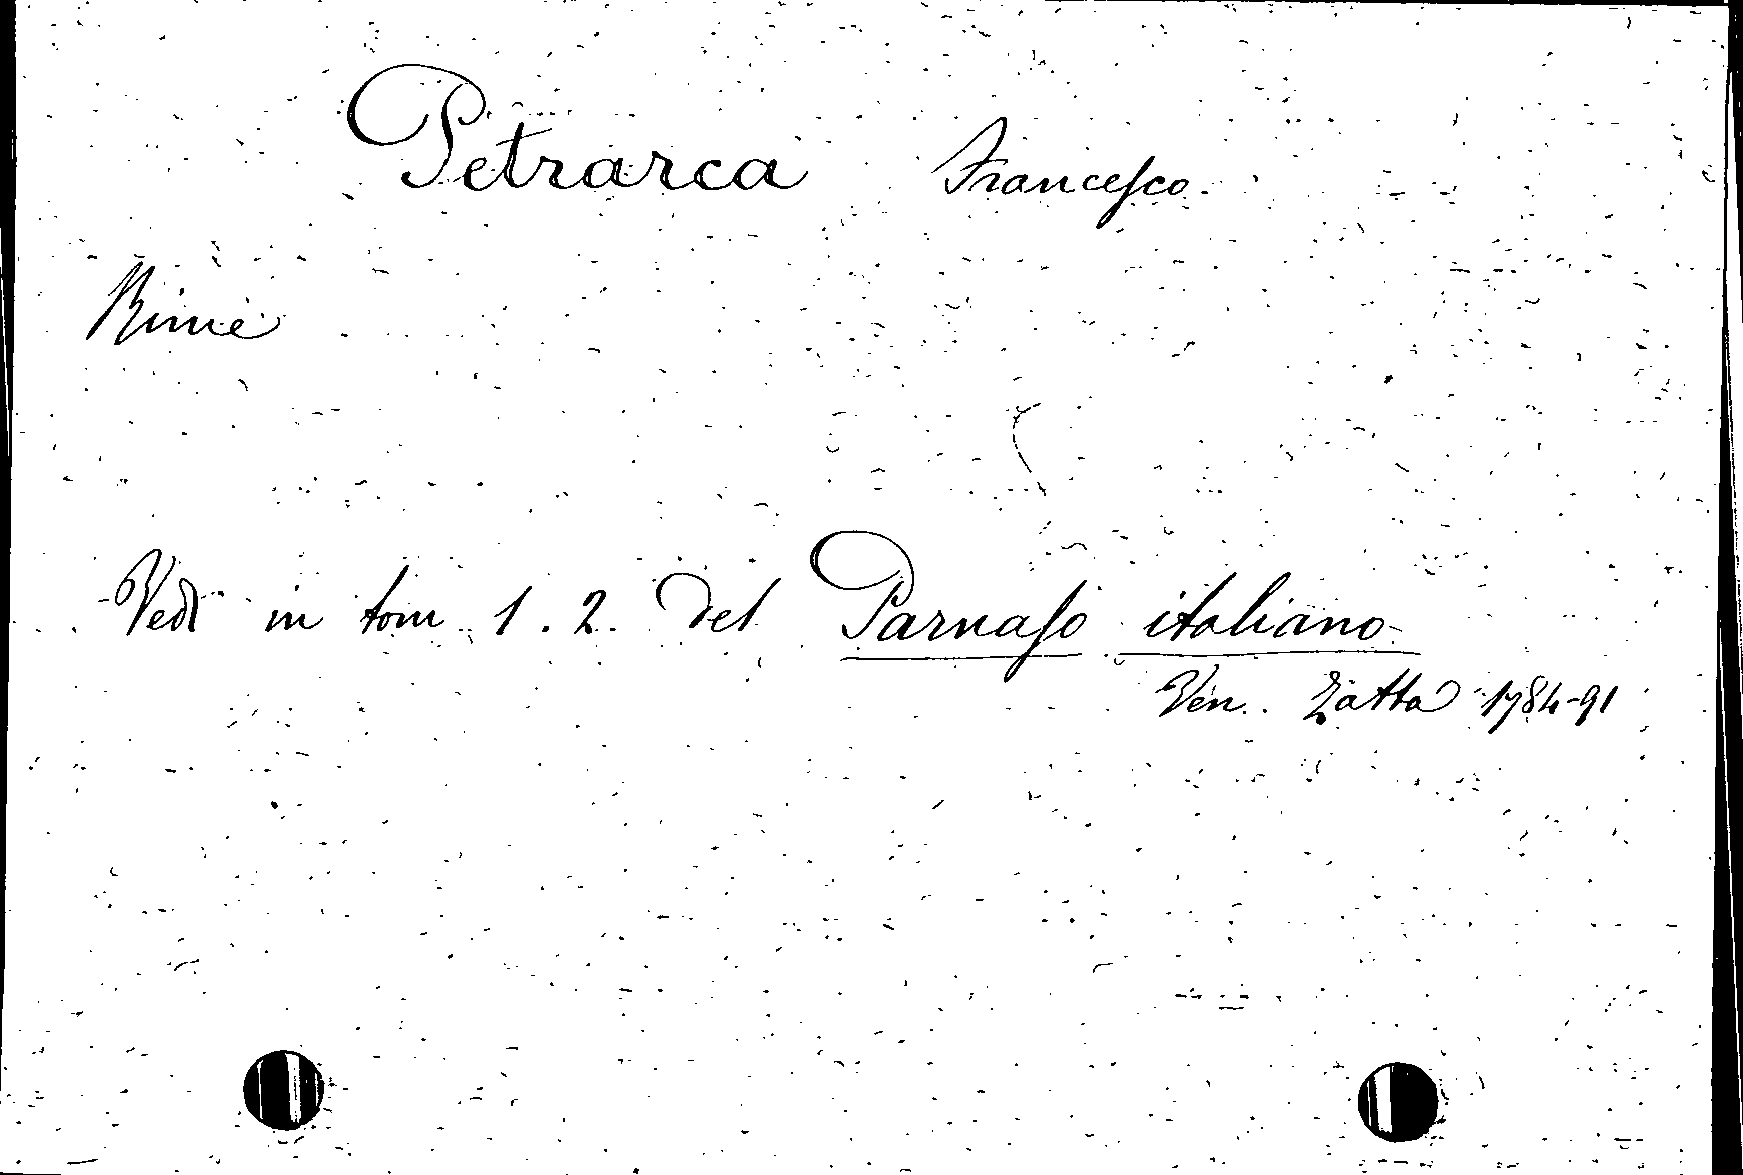 Petrarca Francesco.
Rime
Vedi in tom 1. 2. del Parnaso italiano
Ven. Zatta 1784-91